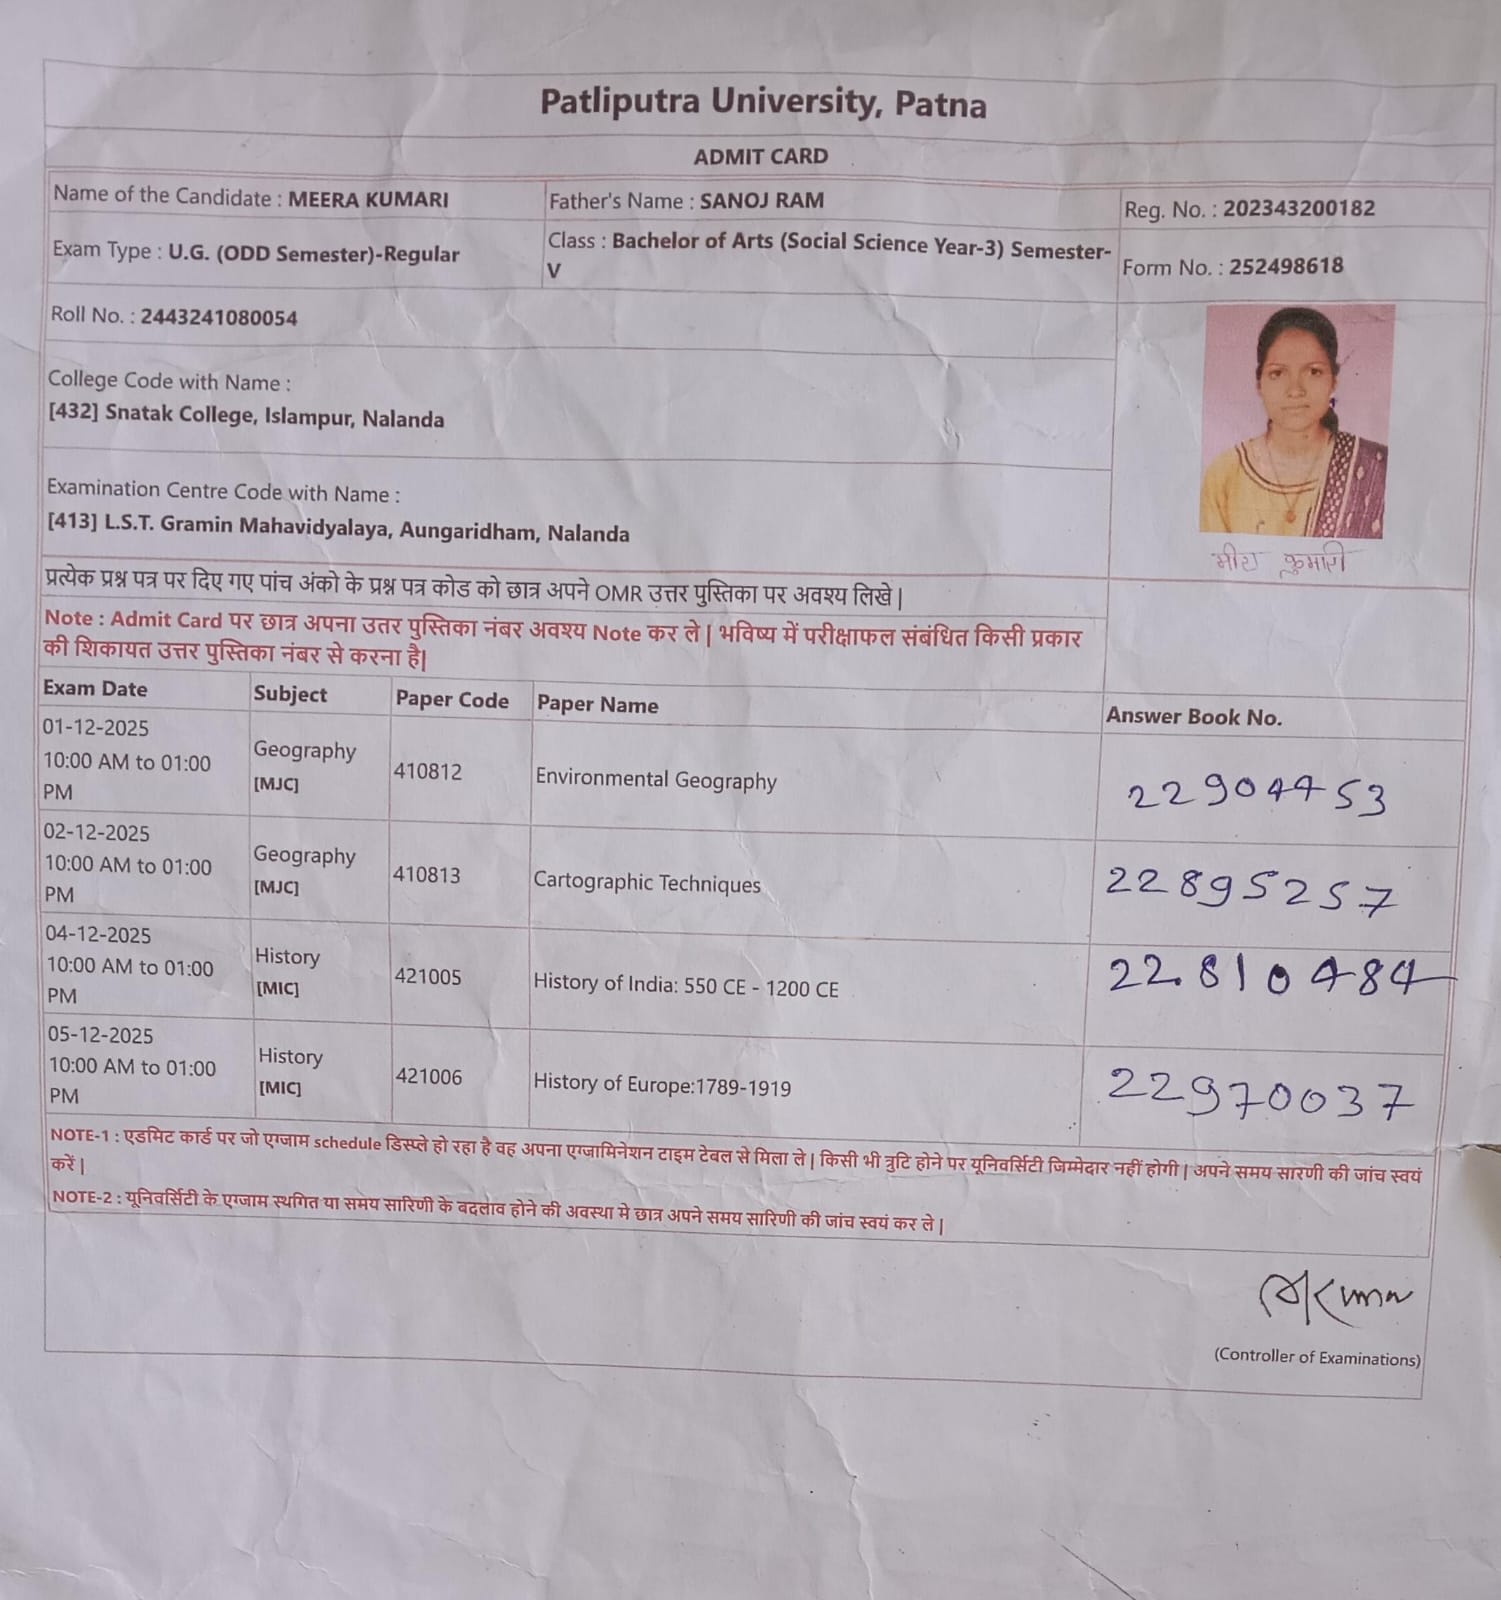 Patliputra University, Patna
ADMIT CARD
Name of the Candidate : MEERA KUMARI
Father's Name : SANOJ RAM
Reg. No. : 202343200182
Exam Type : U.G. (ODD Semester)-Regular
Class : Bachelor of Arts (Social Science Year-3) Semester-
V
Form No. : 252498618
Roll No. : 2443241080054
College Code with Name :
[432] Snatak College, Islampur, Nalanda
Examination Centre Code with Name :
[413] L.S.T. Gramin Mahavidyalaya, Aungaridham, Nalanda
मीरा कुमारी
प्रत्येक प्रश्न पत्र पर दिए गए पांच अंको के प्रश्न पत्र कोड को छात्र अपने OMR उत्तर पुस्तिका पर अवश्य लिखे |
Note : Admit Card पर छात्र अपना उतर पुस्तिका नंबर अवश्य Note कर ले | भविष्य में परीक्षाफल संबंधित किसी प्रकार
की शिकायत उत्तर पुस्तिका नंबर से करना है|
Exam Date Subject Paper Code Paper Name Answer Book No.
01-12-2025
10:00 AM to 01:00
PM
Geography
[MJC]
410812
Environmental Geography
22904453
02-12-2025
10:00 AM to 01:00
PM
Geography
[MJC]
410813
Cartographic Techniques
22895257
04-12-2025
10:00 AM to 01:00
PM
History
[MIC]
421005
History of India: 550 CE - 1200 CE
22810484
05-12-2025
10:00 AM to 01:00
PM
History
[MIC]
421006
History of Europe:1789-1919
22970037
NOTE-1 : एडमिट कार्ड पर जो एग्जाम schedule डिस्प्ले हो रहा है वह अपना एग्जामिनेशन टाइम टेबल से मिला ले | किसी भी त्रुटि होने पर यूनिवर्सिटी जिम्मेदार नहीं होगी | अपने समय सारणी की जांच स्वयं
करें |
NOTE-2 : यूनिवर्सिटी के एग्जाम स्थगित या समय सारिणी के बदलाव होने की अवस्था मे छात्र अपने समय सारिणी की जांच स्वयं कर ले |
(Controller of Examinations)